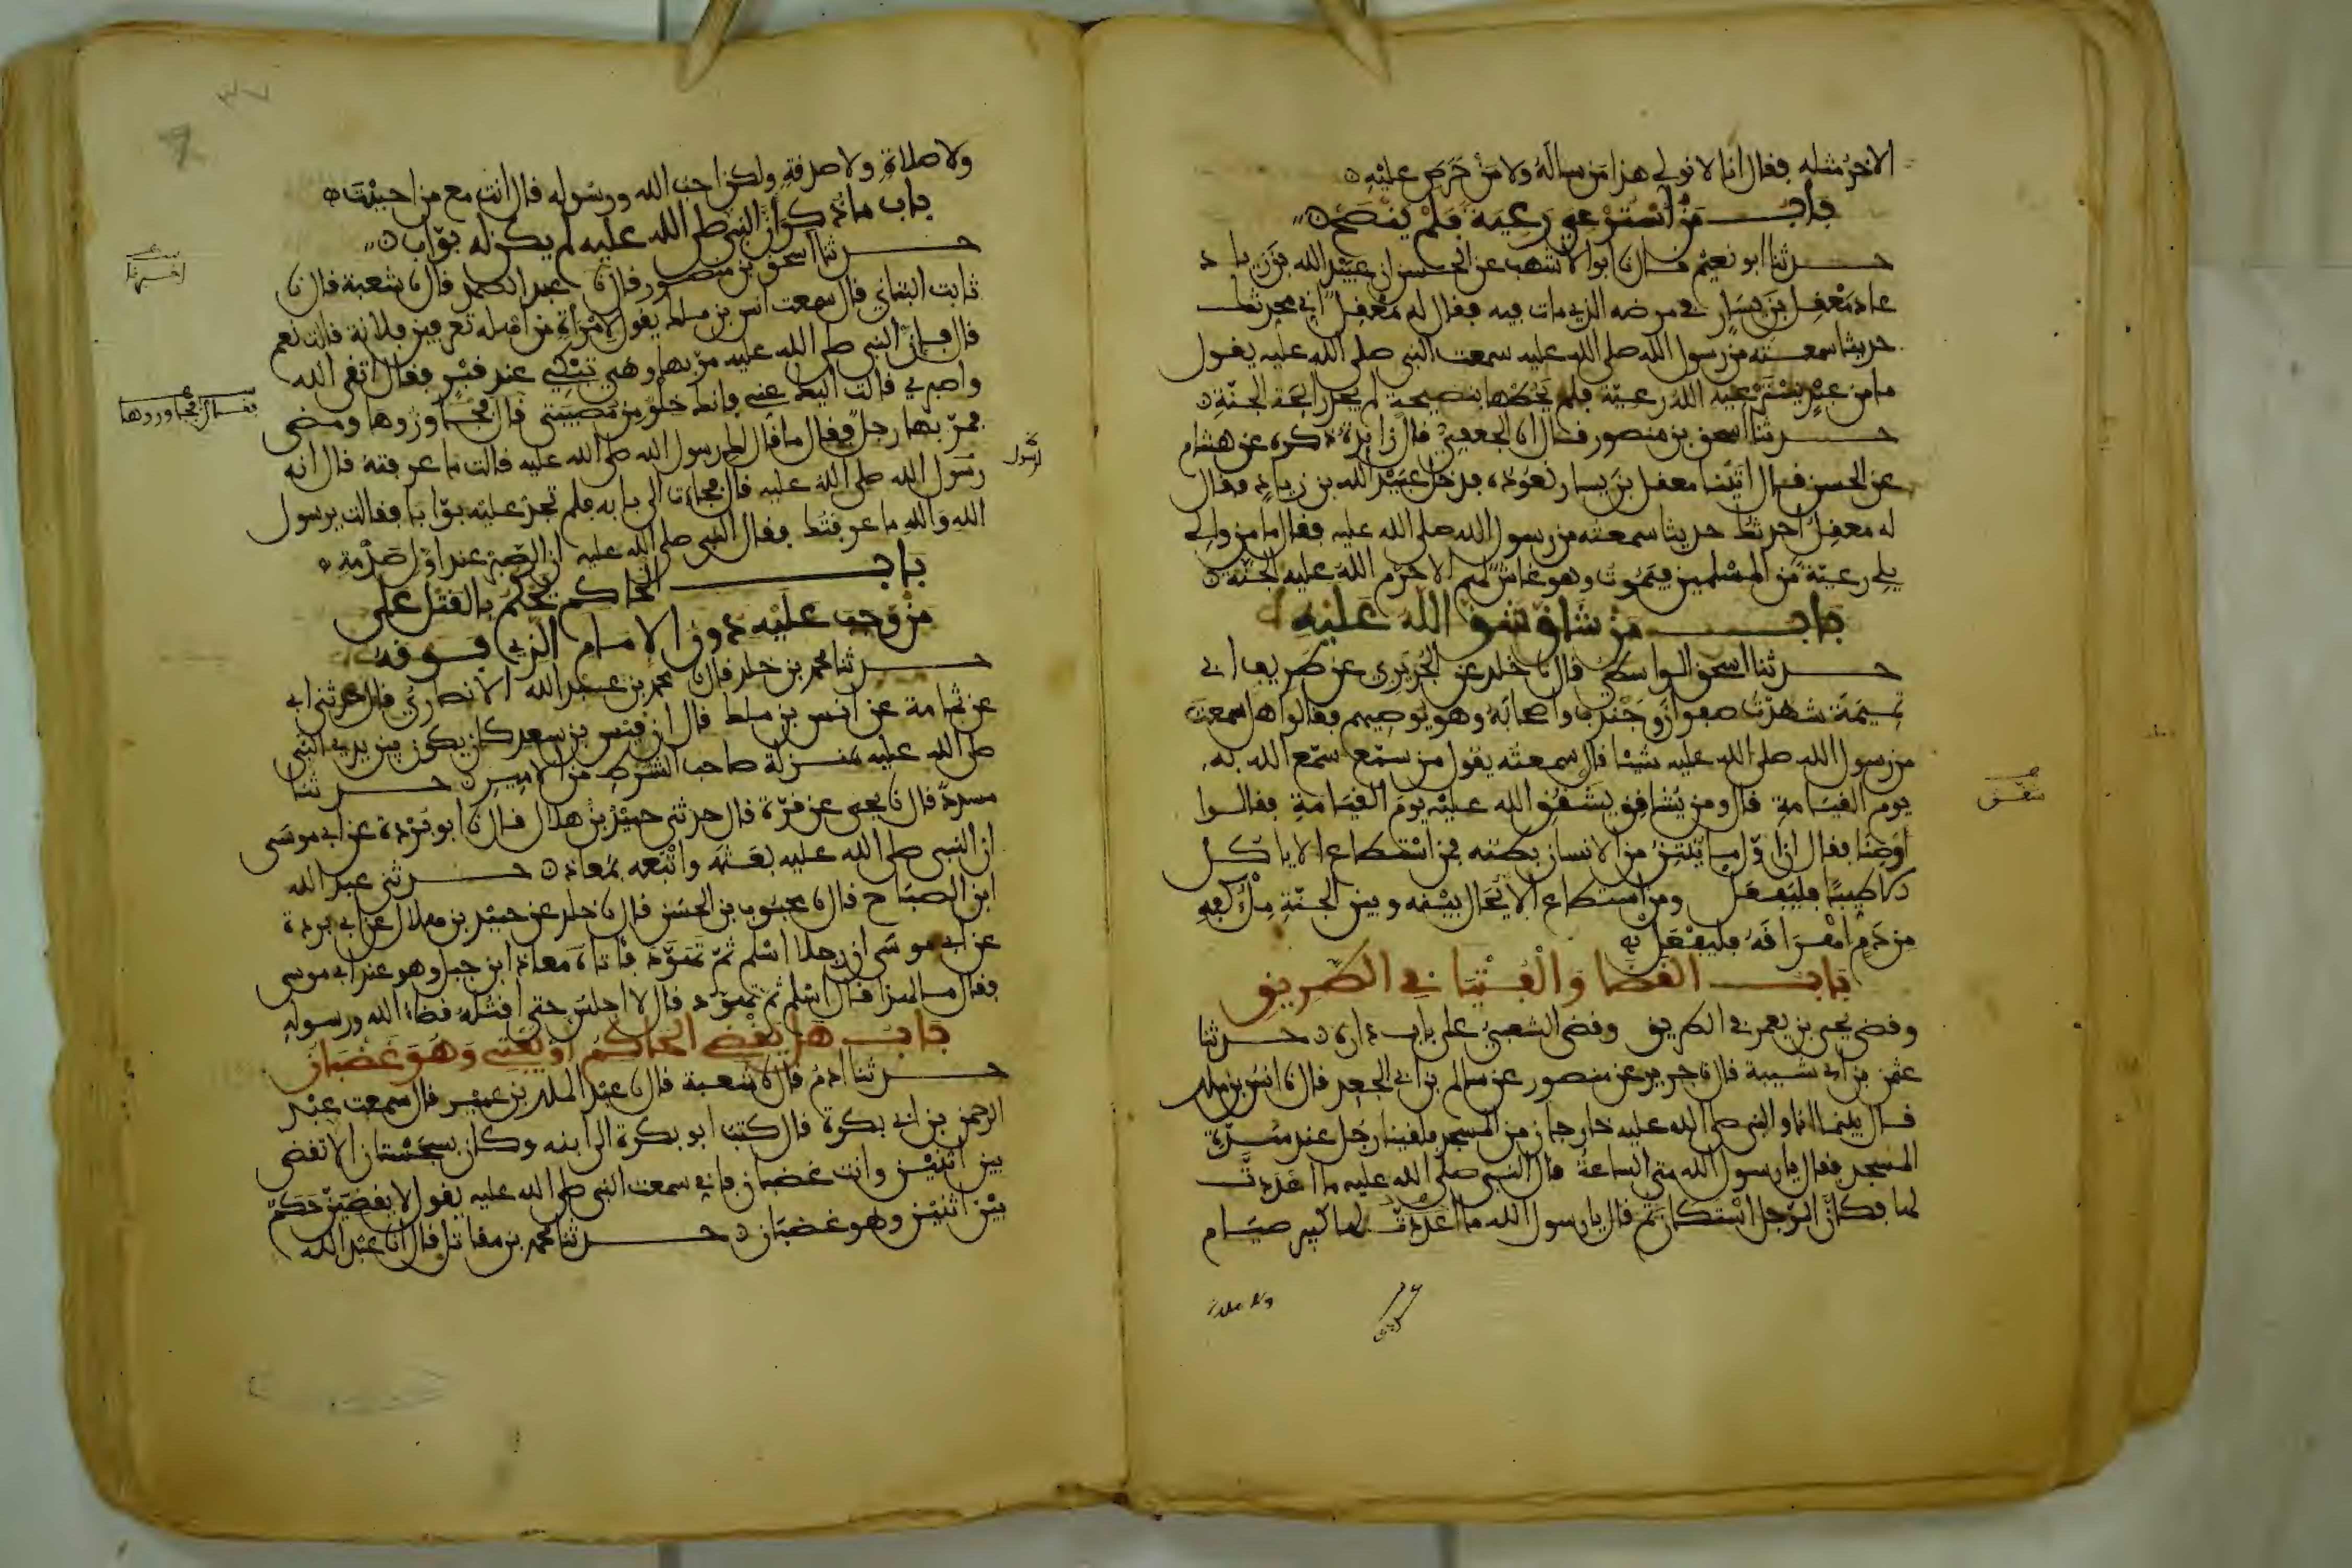 الاخر مثله فقال انا لا نولي هذا من ساله ولا من حرص عليه
باب من استرعي رعية فلم ينصح
حدثنا ابو نعيم قال نا ابو الاشهب عن الحسن ان عبيد الله بن زياد
عاد معقل بن يسار في مرضه الذي مات فيه فقال له معقل اني محدثك
حديثا سمعته من رسول الله صلى الله عليه سمعت النبي صلى الله عليه يقول
ما من عبد يسترعيه الله رعية فلم يحطها بنصيحة لم يجد رائحة الجنة
حدثنا اسحق بن منصور قال انا الجعفي قال زائدة ذكره عن هشام
عن الحسن قال اتينا معقل بن يسار نعوده فدخل عبيد الله بن زياد فقال
له معقل احدثك حديثا سمعته من رسول الله صلى الله عليه فقال ما من والي
يلي رعية من المسلمين فيموت وهو غاش لهم الا حرم الله عليه الجنة
باب من شاق شق الله عليه
حدثنا اسحق الواسطي قال نا خلد عن الجريري عن طريف ابي
تميمة شهدت صفوان وجندب واصحابه وهو يوصيهم فقالوا هل سمعت
من رسول الله صلى الله عليه شيئا قال سمعته يقول من سمع سمع الله به
يوم القيامة قال ومن يشاقق يشقق الله عليه يوم القيامة فقالوا
اوصنا فقال ان اول ما ينتن من الانسان بطنه فمن استطاع الا ياكل
الا طيبا فليفعل ومن استطاع الا يحال بينه وبين الجنة ملء كفه
من دم اهراقه فليفعل
باب القضا والفتيا في الطريق
وقضى يحيى بن يعمر في الطريق وقضى الشعبي على باب داره حدثنا
عثمن بن ابي شيبة قال نا جرير عن منصور عن سالم بن ابي الجعد قال نا انس بن ملك
قال بينما انا والنبي صلى الله عليه خارجان من المسجد فلقينا رجل عند سدة
المسجد فقال يا رسول الله متى الساعة قال النبي صلى الله عليه ما اعددت
لها فكان الرجل استكان ثم قال يا رسول الله ما اعددت لها كبير صيام
ولا صلاة
ولا صلاة ولا صدقة ولكن احب الله ورسوله قال انت مع من احببت
باب ما ذكر ان النبي صلى الله عليه لم يكن له بواب
حدثنا اسحق بن منصور قال نا عبد الصمد قال نا شعبة قال نا
ثابت البناني قال سمعت انس بن ملك يقول لامراة من اهله تعرفين فلانة قالت نعم
قال فان النبي صلى الله عليه مر بها وهي تبكي عند قبر فقال اتقي الله
واصبري فقالت اليك عني فانك خلو من مصيبتي قال فجاوزها ومضى
فمر بها رجل فقال ما قال لك رسول الله صلى الله عليه قالت ما عرفته قال انه
رسول الله صلى الله عليه قال فجاءت الى بابه فلم تجد عليه بوابا فقالت يرسول
الله والله ما عرفتك فقال النبي صلى الله عليه ان الصبر عند اول صدمة
باب الحاكم يحكم بالقتل على
من وجب عليه دون الامام الذي فوقه
حدثنا محمد بن خلد قال نا محمد بن عبد الله الانصاري قال حدثني ابي
عن ثمامة عن انس بن ملك قال ان قيس بن سعد كان يكون بين يدي النبي
صلى الله عليه بمنزلة صاحب الشرط من الامير حدثنا
مسدد قال نا يحيى عن قرة قال حدثني حميد بن هلال قال نا ابو بردة عن ابي موسى
ان النبي صلى الله عليه بعثه واتبعه بمعاذ حدثني عبد الله
ابن الصباح قال نا محبوب بن الحسن قال نا خلد عن حميد بن هلال عن ابي بردة
عن ابي موسى ان رجلا اسلم ثم تهود فاتاه معاذ ابن جبل وهو عند ابي موسى
فقال ما لهذا قال اسلم ثم تهود قال لا اجلس حتى اقتله قضاء الله ورسوله
باب هل يقضي الحاكم او يفتي وهو غضبان
حدثنا ادم قال نا شعبة قال نا عبد الملك بن عمير قال سمعت عبد
الرحمن بن ابي بكرة قال كتب ابو بكرة الى ابنه وكان بسجستان الا تقضي
بين اثنين وانت غضبان فاني سمعت النبي صلى الله عليه يقول لا يقضين حكم
بين اثنين وهو غضبان حدثنا محمد بن مقاتل قال انا عبد الله